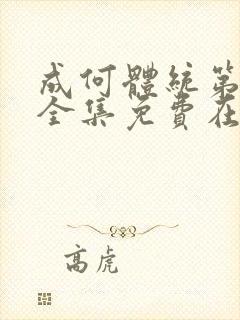 成何體統第
全集免費在
高虎